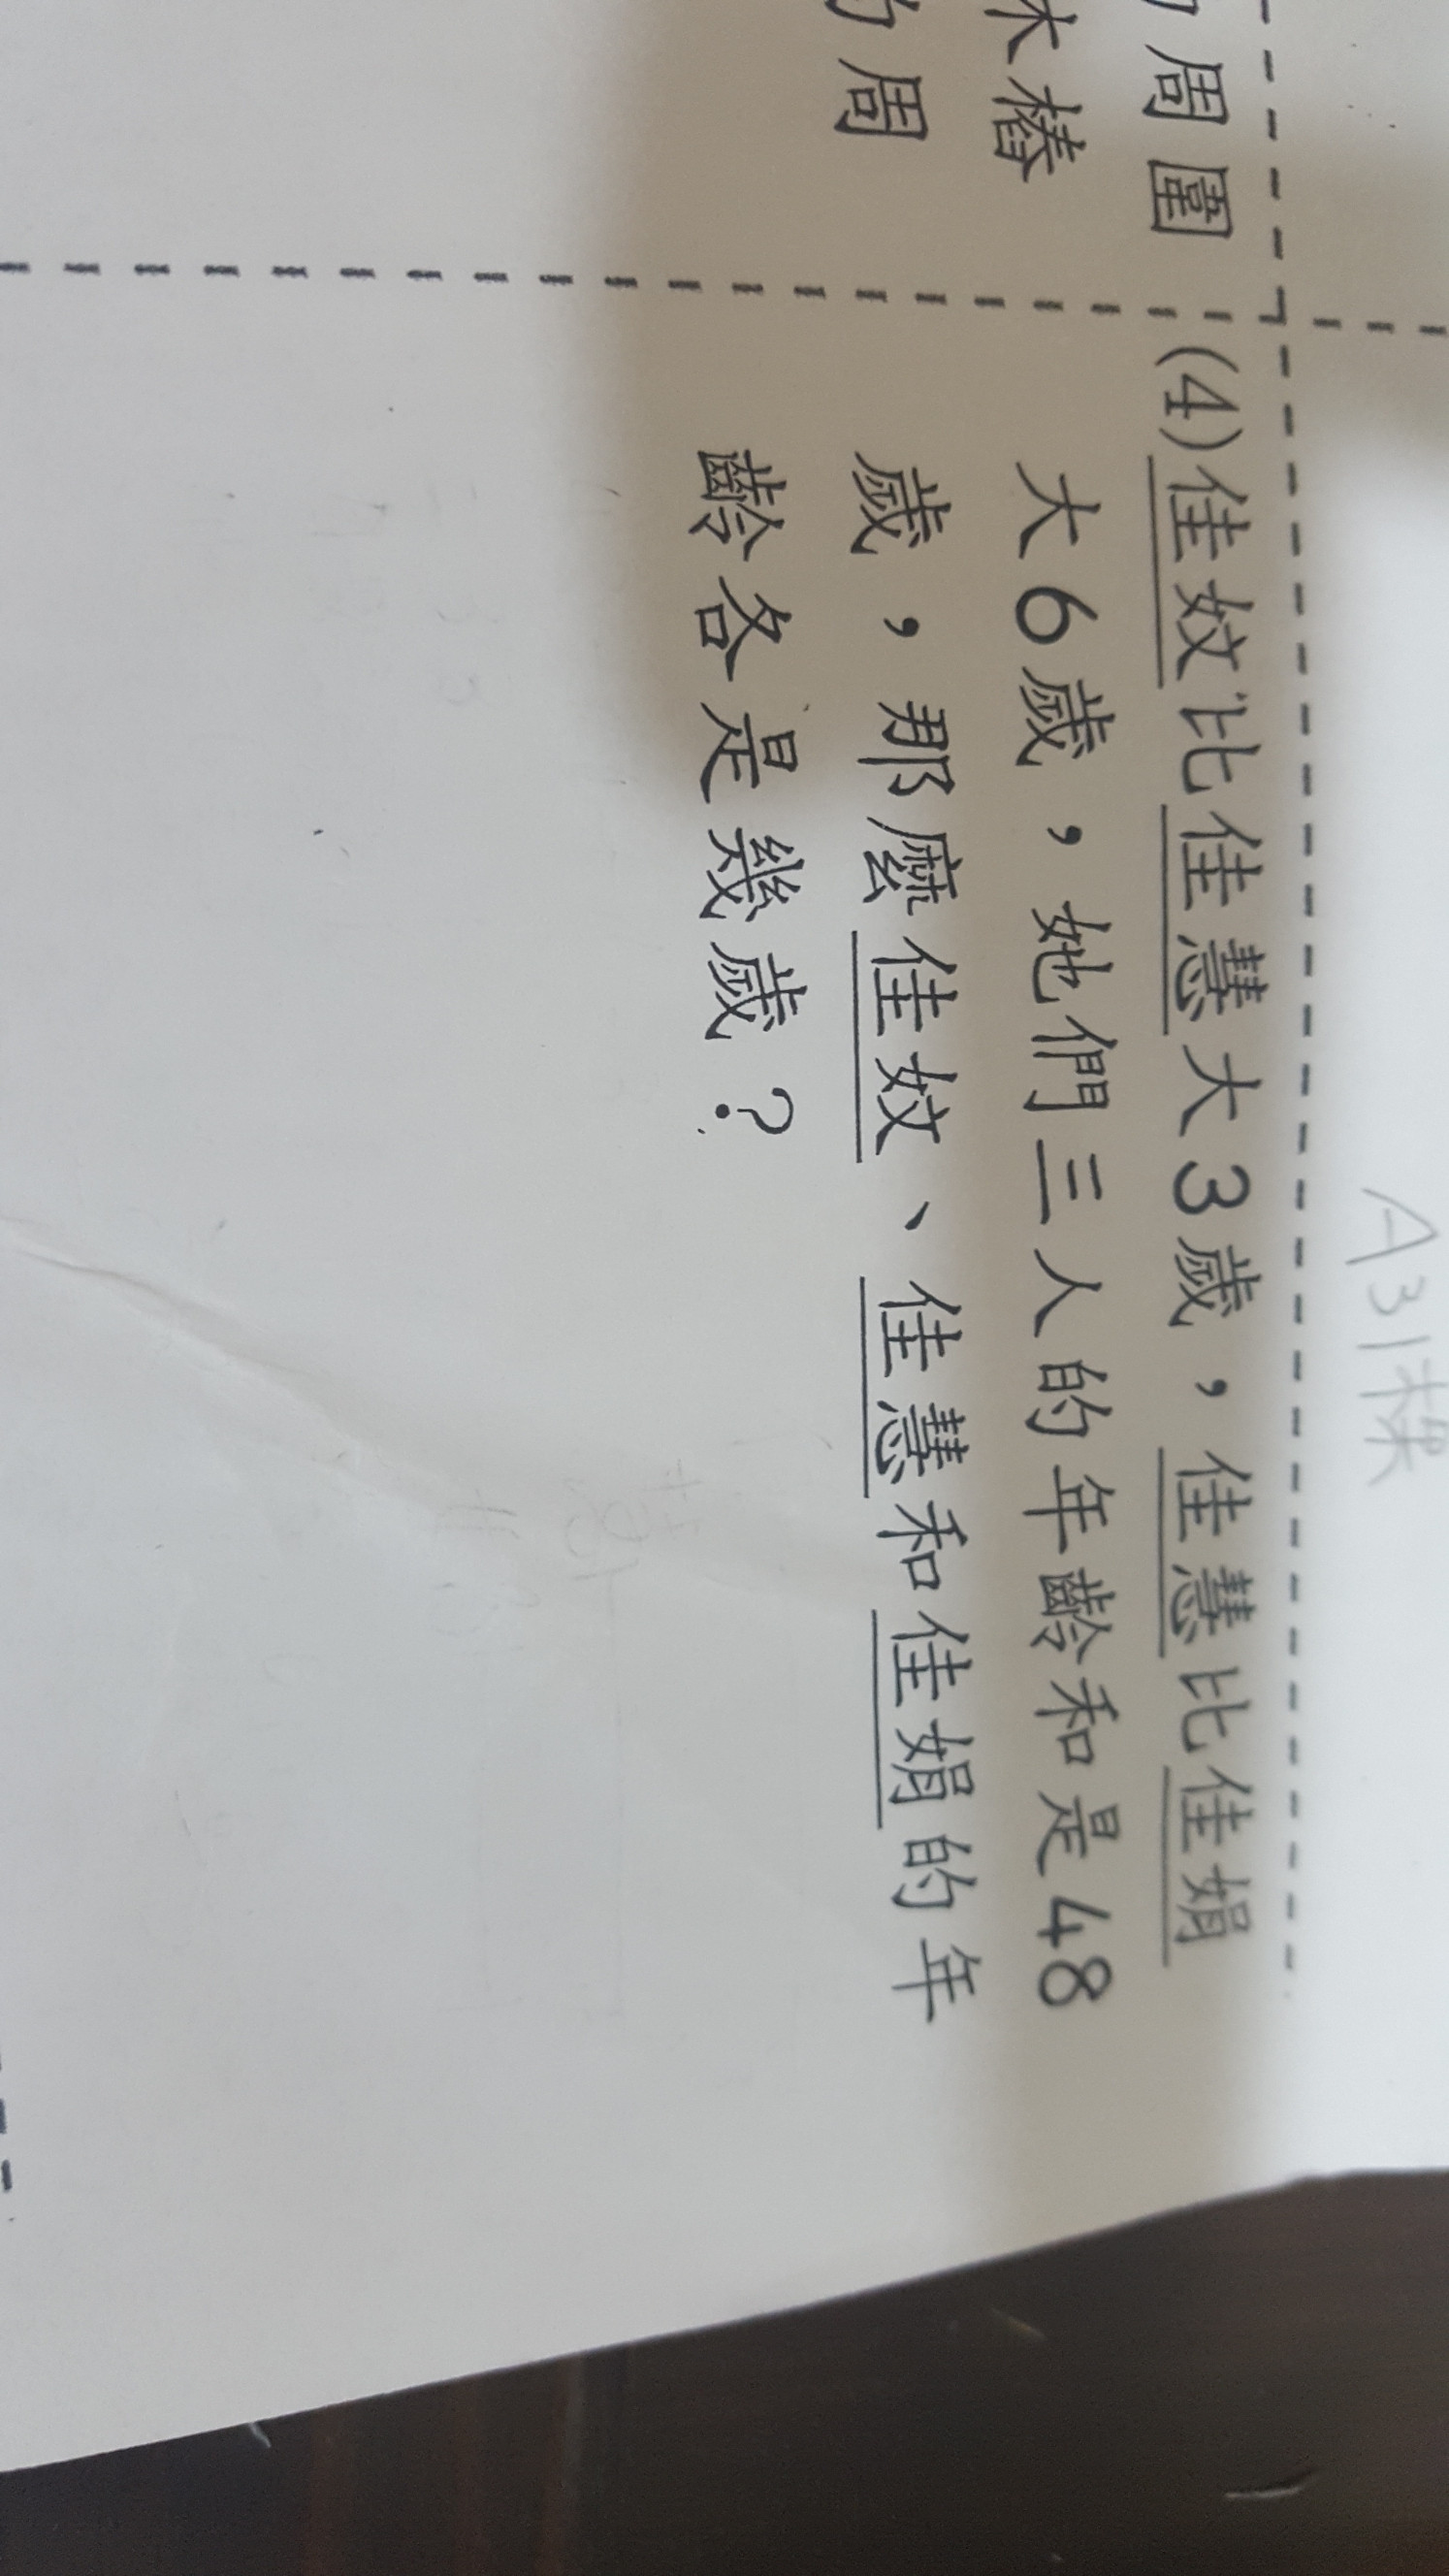 A31棵
周圍
木樁
的周
(4)佳妏比佳慧大3歲，佳慧比佳娟
大6歲，她們三人的年齡和是48
歲，那麼佳妏、佳慧和佳娟的年
齡各是幾歲？